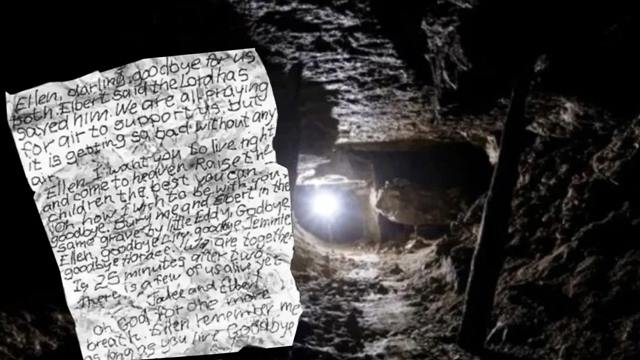 Ellen, darling, goodbye for us
both. Elbert said the Lord has
saved him. We are all praying
for air to support us, but
it is getting so bad without any
air.
Ellen I want you to live right
and come to heaven. Raise the
children the best you can.
Oh how I wish to be with you,
goodbye. Bury me and Elbert in the
same grave by little Eddy. Godbye
Ellen, goodbye Lily, goodbye Jemmie,
goodbye Horace. We are together.
Is 25 minutes after two.
There is a few of us alive yet
Jake and Elbert
oh God for one more
breath. Ellen remember me
as long as you live Goodbye